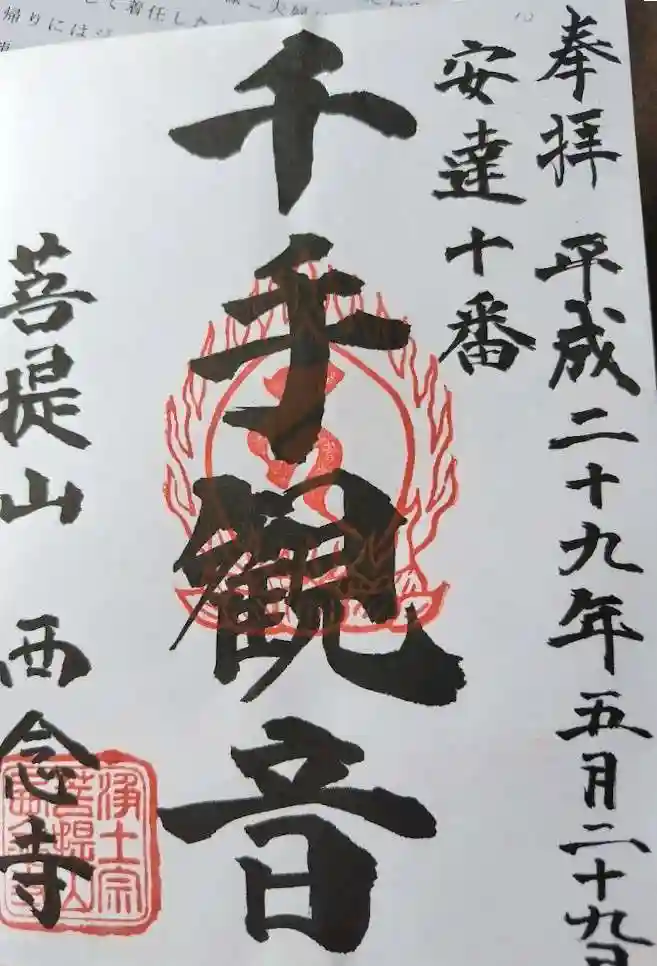 奉拝 平成二十九年五月二十九日
安達十番
千手観音
菩提山 西念寺
浄土宗
菩提山
帰りには
て着任した